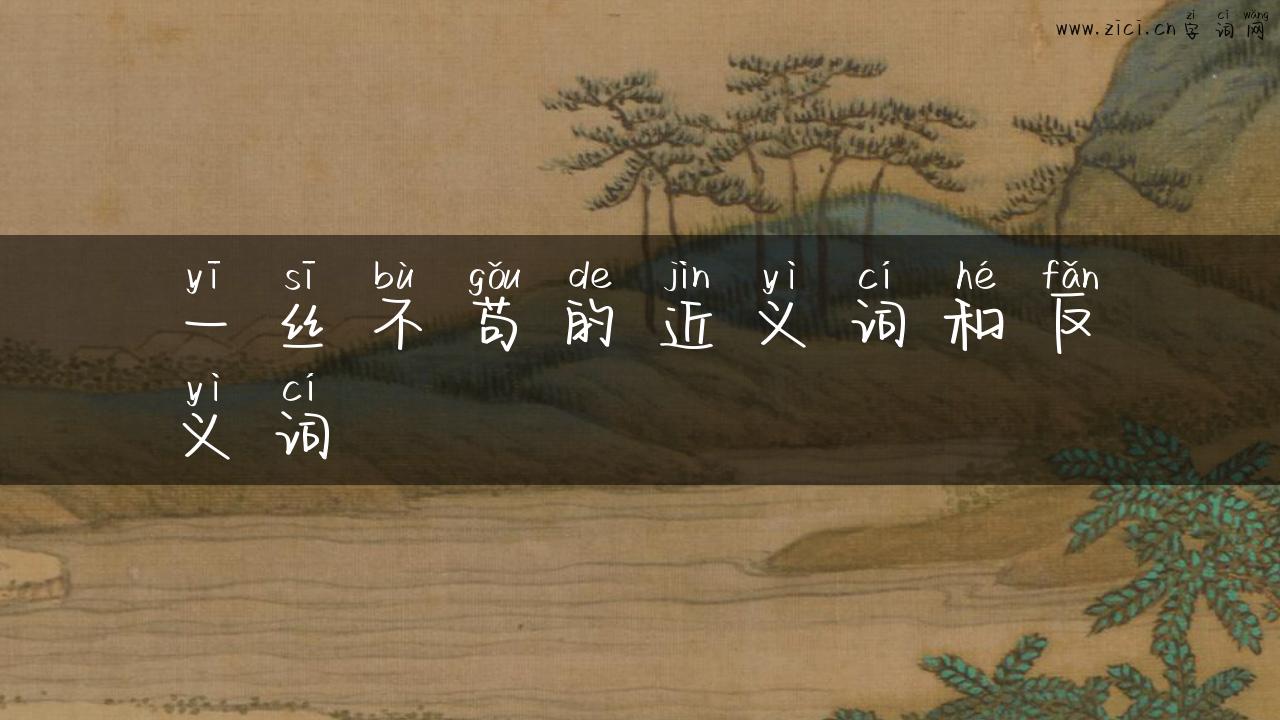 zì cí wǎng
www.zici.cn 字 词 网
yī sī bù gǒu de jìn yì cí hé fǎn
一 丝 不 苟 的 近 义 词 和 反
yì cí
义 词